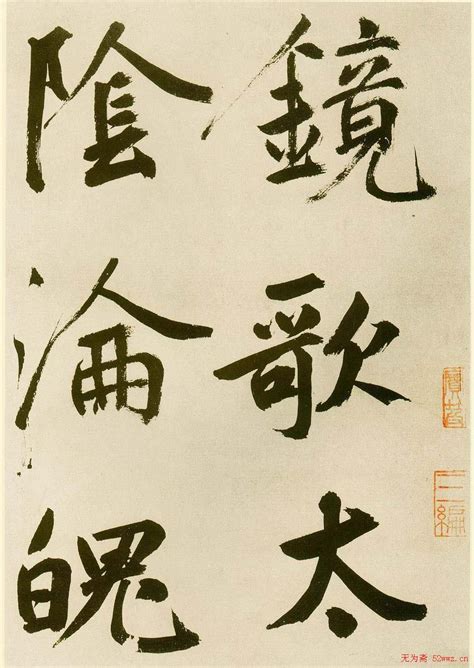 鏡歌太
陰淪魄
寶笈
三編
无为斋 52wwz.cn